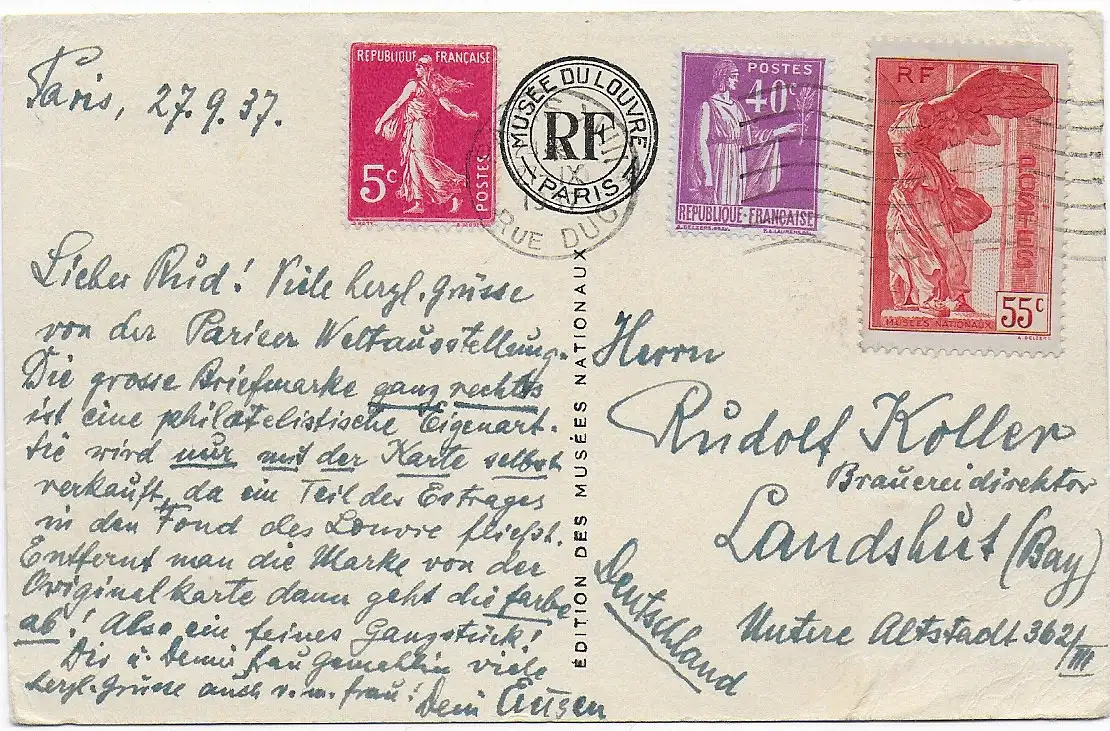 Paris, 27.9.37.
REPUBLIQUE FRANÇAISE
5c
POSTES
MUSÉE DU LOUVRE
RF
PARIS
IX
RUE DU
POSTES
40c
REPUBLIQUE-FRANÇAISE
RF
POSTES
MUSEES NATIONAUX
55c
Lieber Rud! Viele herzl. Grüsse
von der Pariser Weltausstellung.
Die grosse Briefmarke ganz rechts
ist eine philatelistische Eigenart.
Sie wird nur mit der Karte selbst
verkauft, da ein Teil des Ertrages
in den Fond des Louvre fließt.
Entfernt man die Marke von der
Originalkarte dann geht die Farbe
ab! Also ein feines Ganzstück!
Dir u. Deiner Frau Gemahlin viele
herzl. Grüsse auch v. m. Frau!
Dein Eugen
ÉDITION DES MUSÉES NATIONAUX
Herrn
Rudolf Koller
Brauereidirektor
Landshut (Bay)
Untere Altstadt 362/III
Deutschland